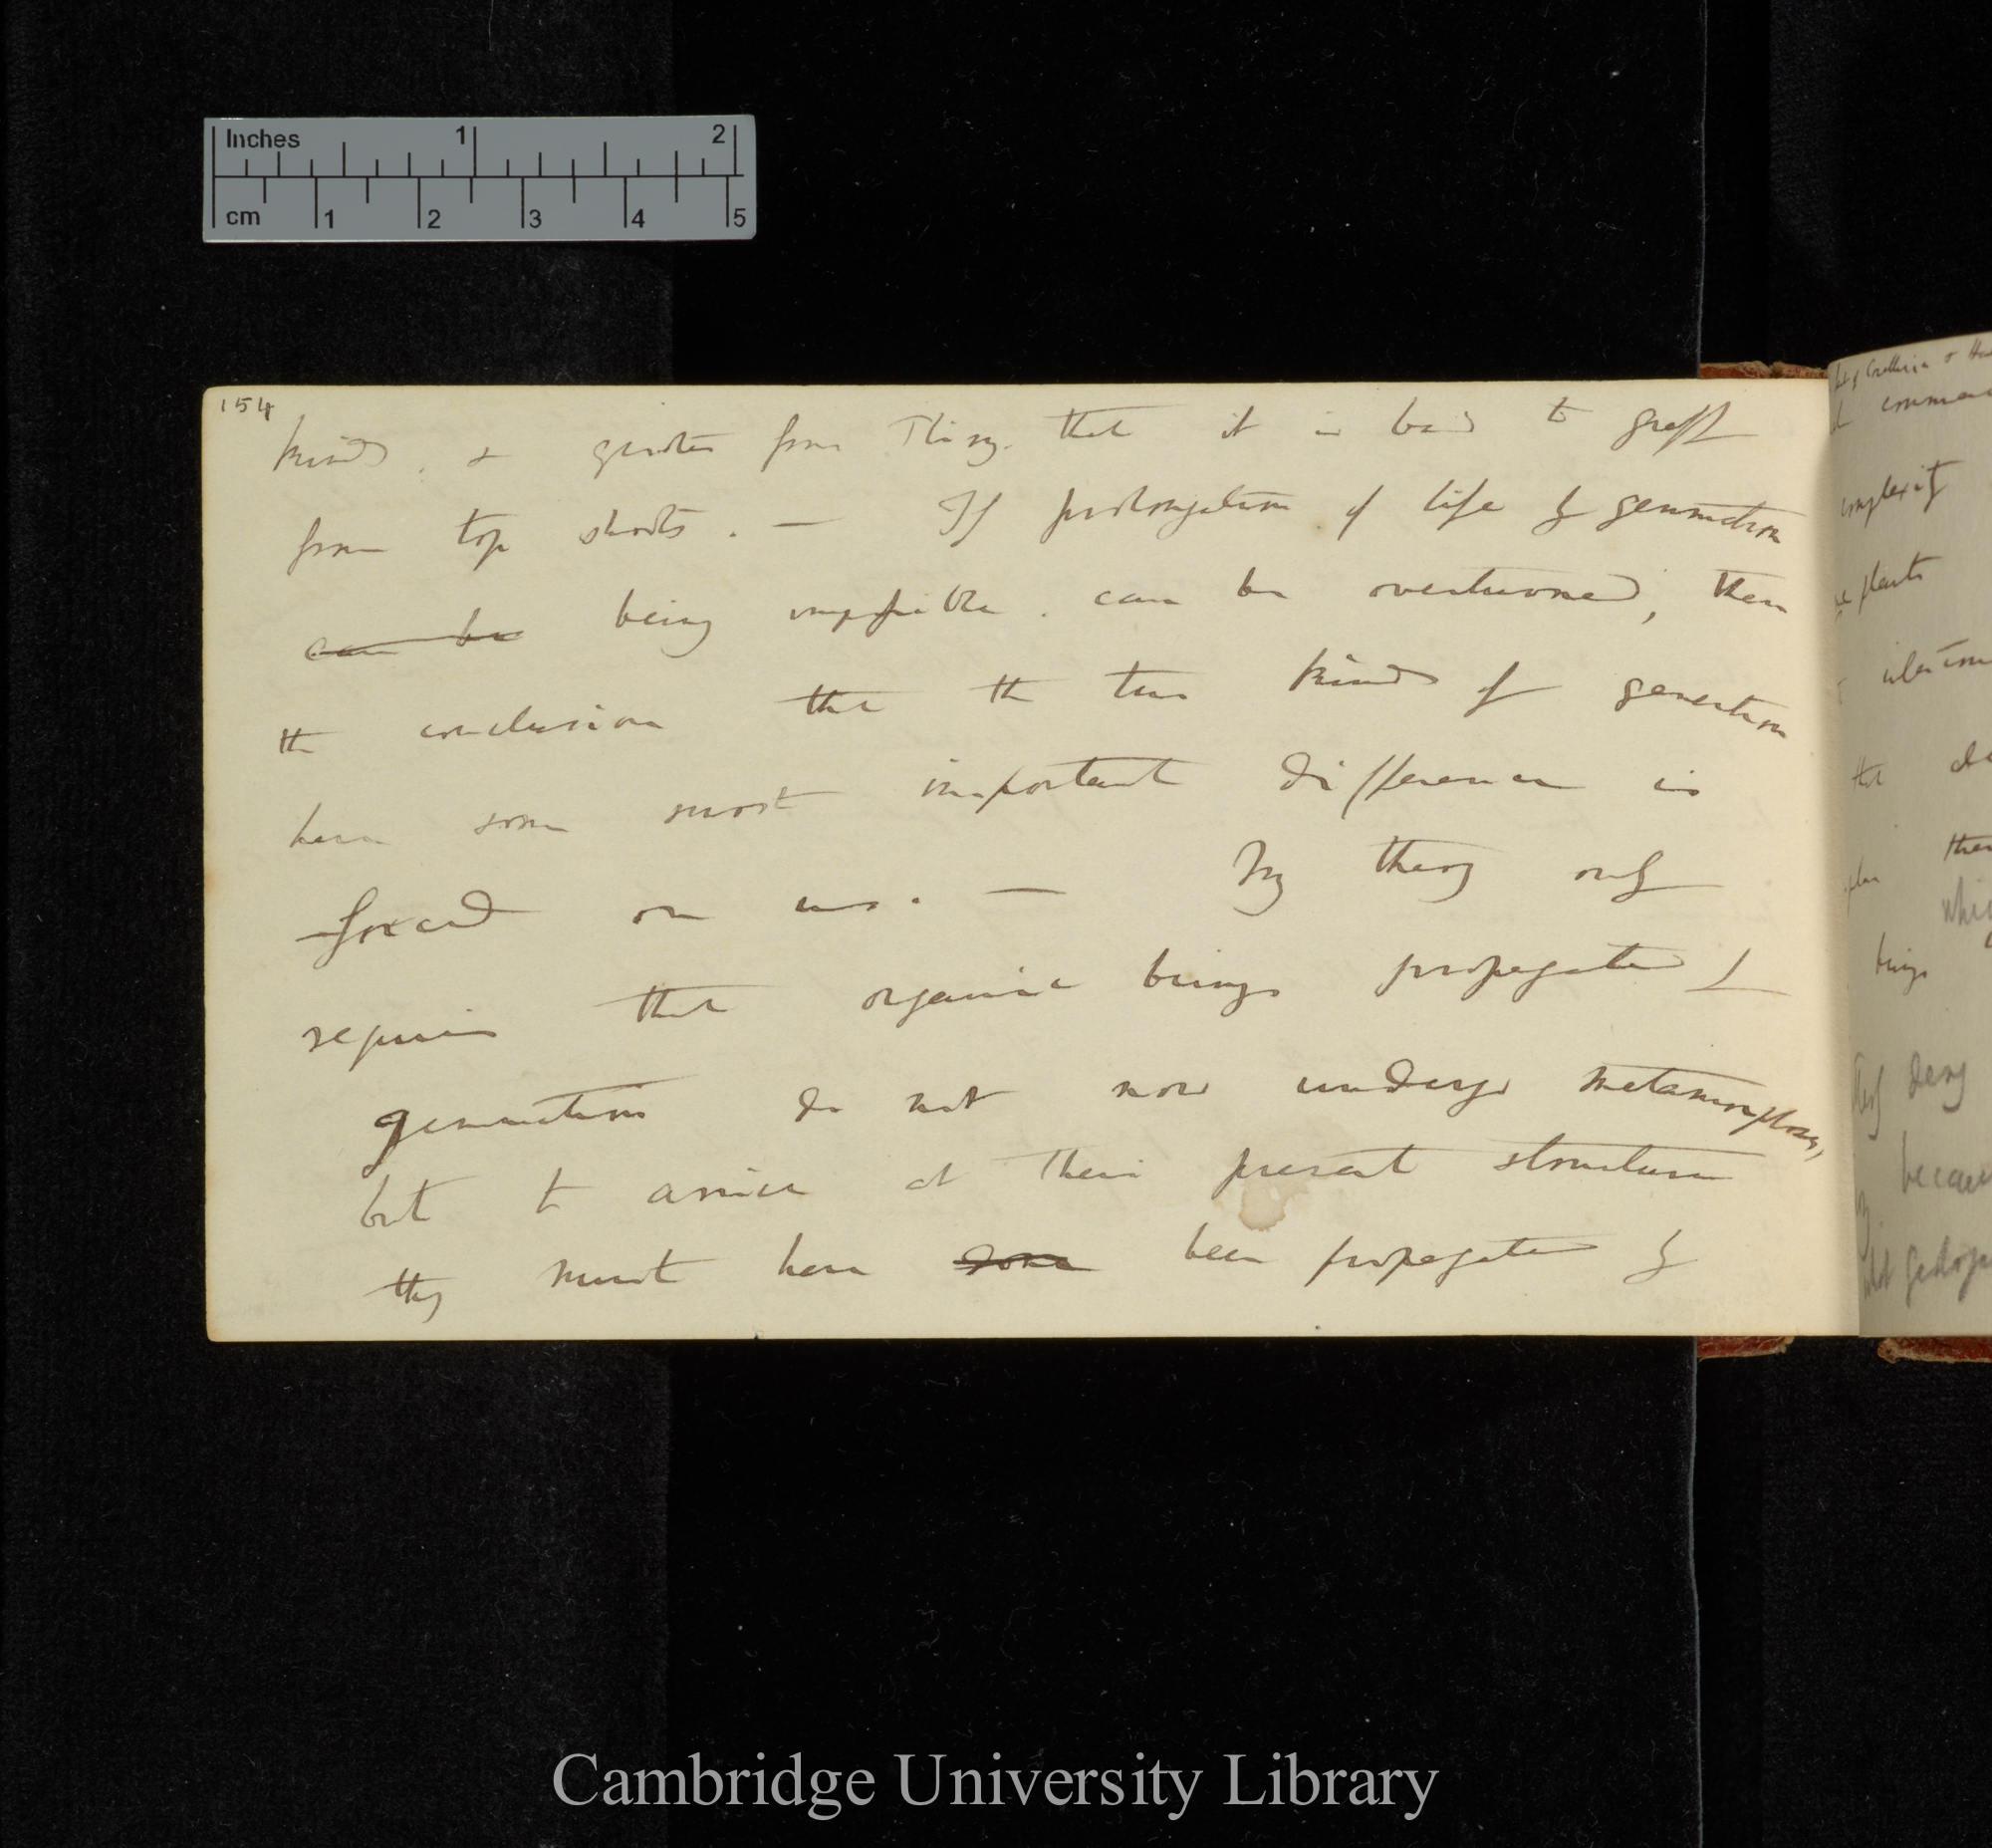 Inches 1 2
cm 1 2 3 4 5
154
kinds. & quotes from that it is bad to graft
from top shoots. — If prolongation of life by gemmation
can be being impossible. can be overturned, then
the conclusion that the two kinds of generation
have some most important difference is
forced on us. — My theory only
requires that organic beings propagated by
gemmation do not now undergo metamorphosis,
but to arrive at their present structure
they must have gone been propagated by
complexity
plants
that
beings
deny
Cambridge University Library